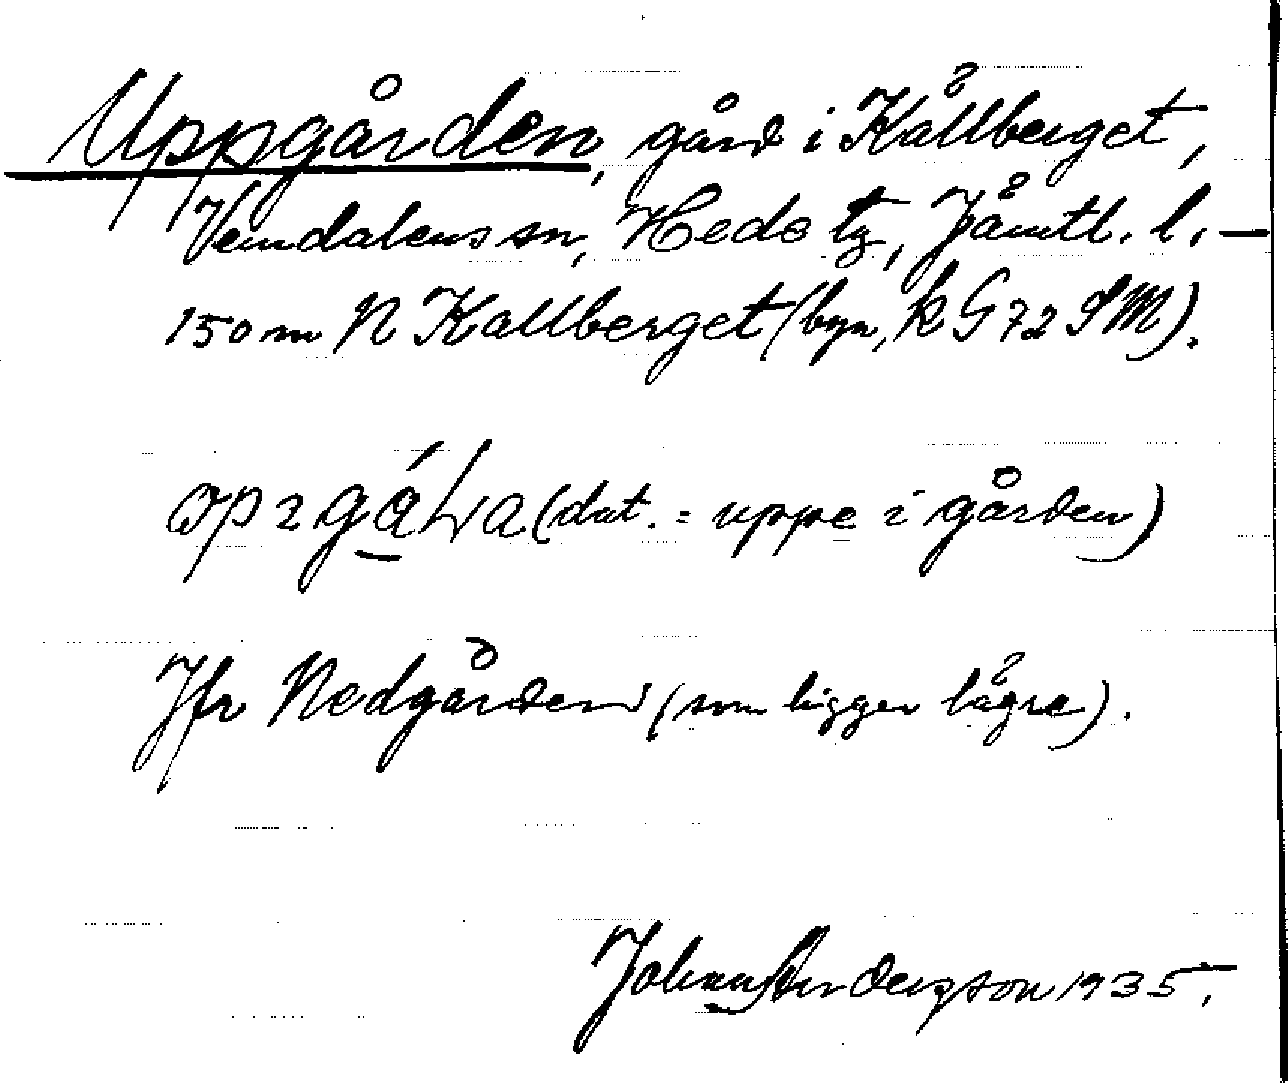 Uppgården, gård i Kållberget,
Vemdalens sn, Hede tg, Jämtl. l. —
150 m N Kallberget (byn, kG72 SM).
(dat. = uppe i gården)
Jfr Nedgården (som ligger lägre).
Johan Andersson 1935.